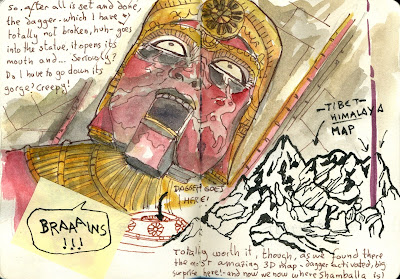 so, after all is set and done,
the dagger - which I have
totally not broken, huh - goes
into the statue, it opens its
mouth and... Seriously?
Do I have to go down its
gorge? Creepy!
- TIBET -
HIMALAYA
MAP
DAGGER GOES
HERE!
BRAAAINS
!!!
Totally worth it, though, as we found there
the most amazing 3D map - dagger activated, big
surprise here! - and now we now where Shamballa is!